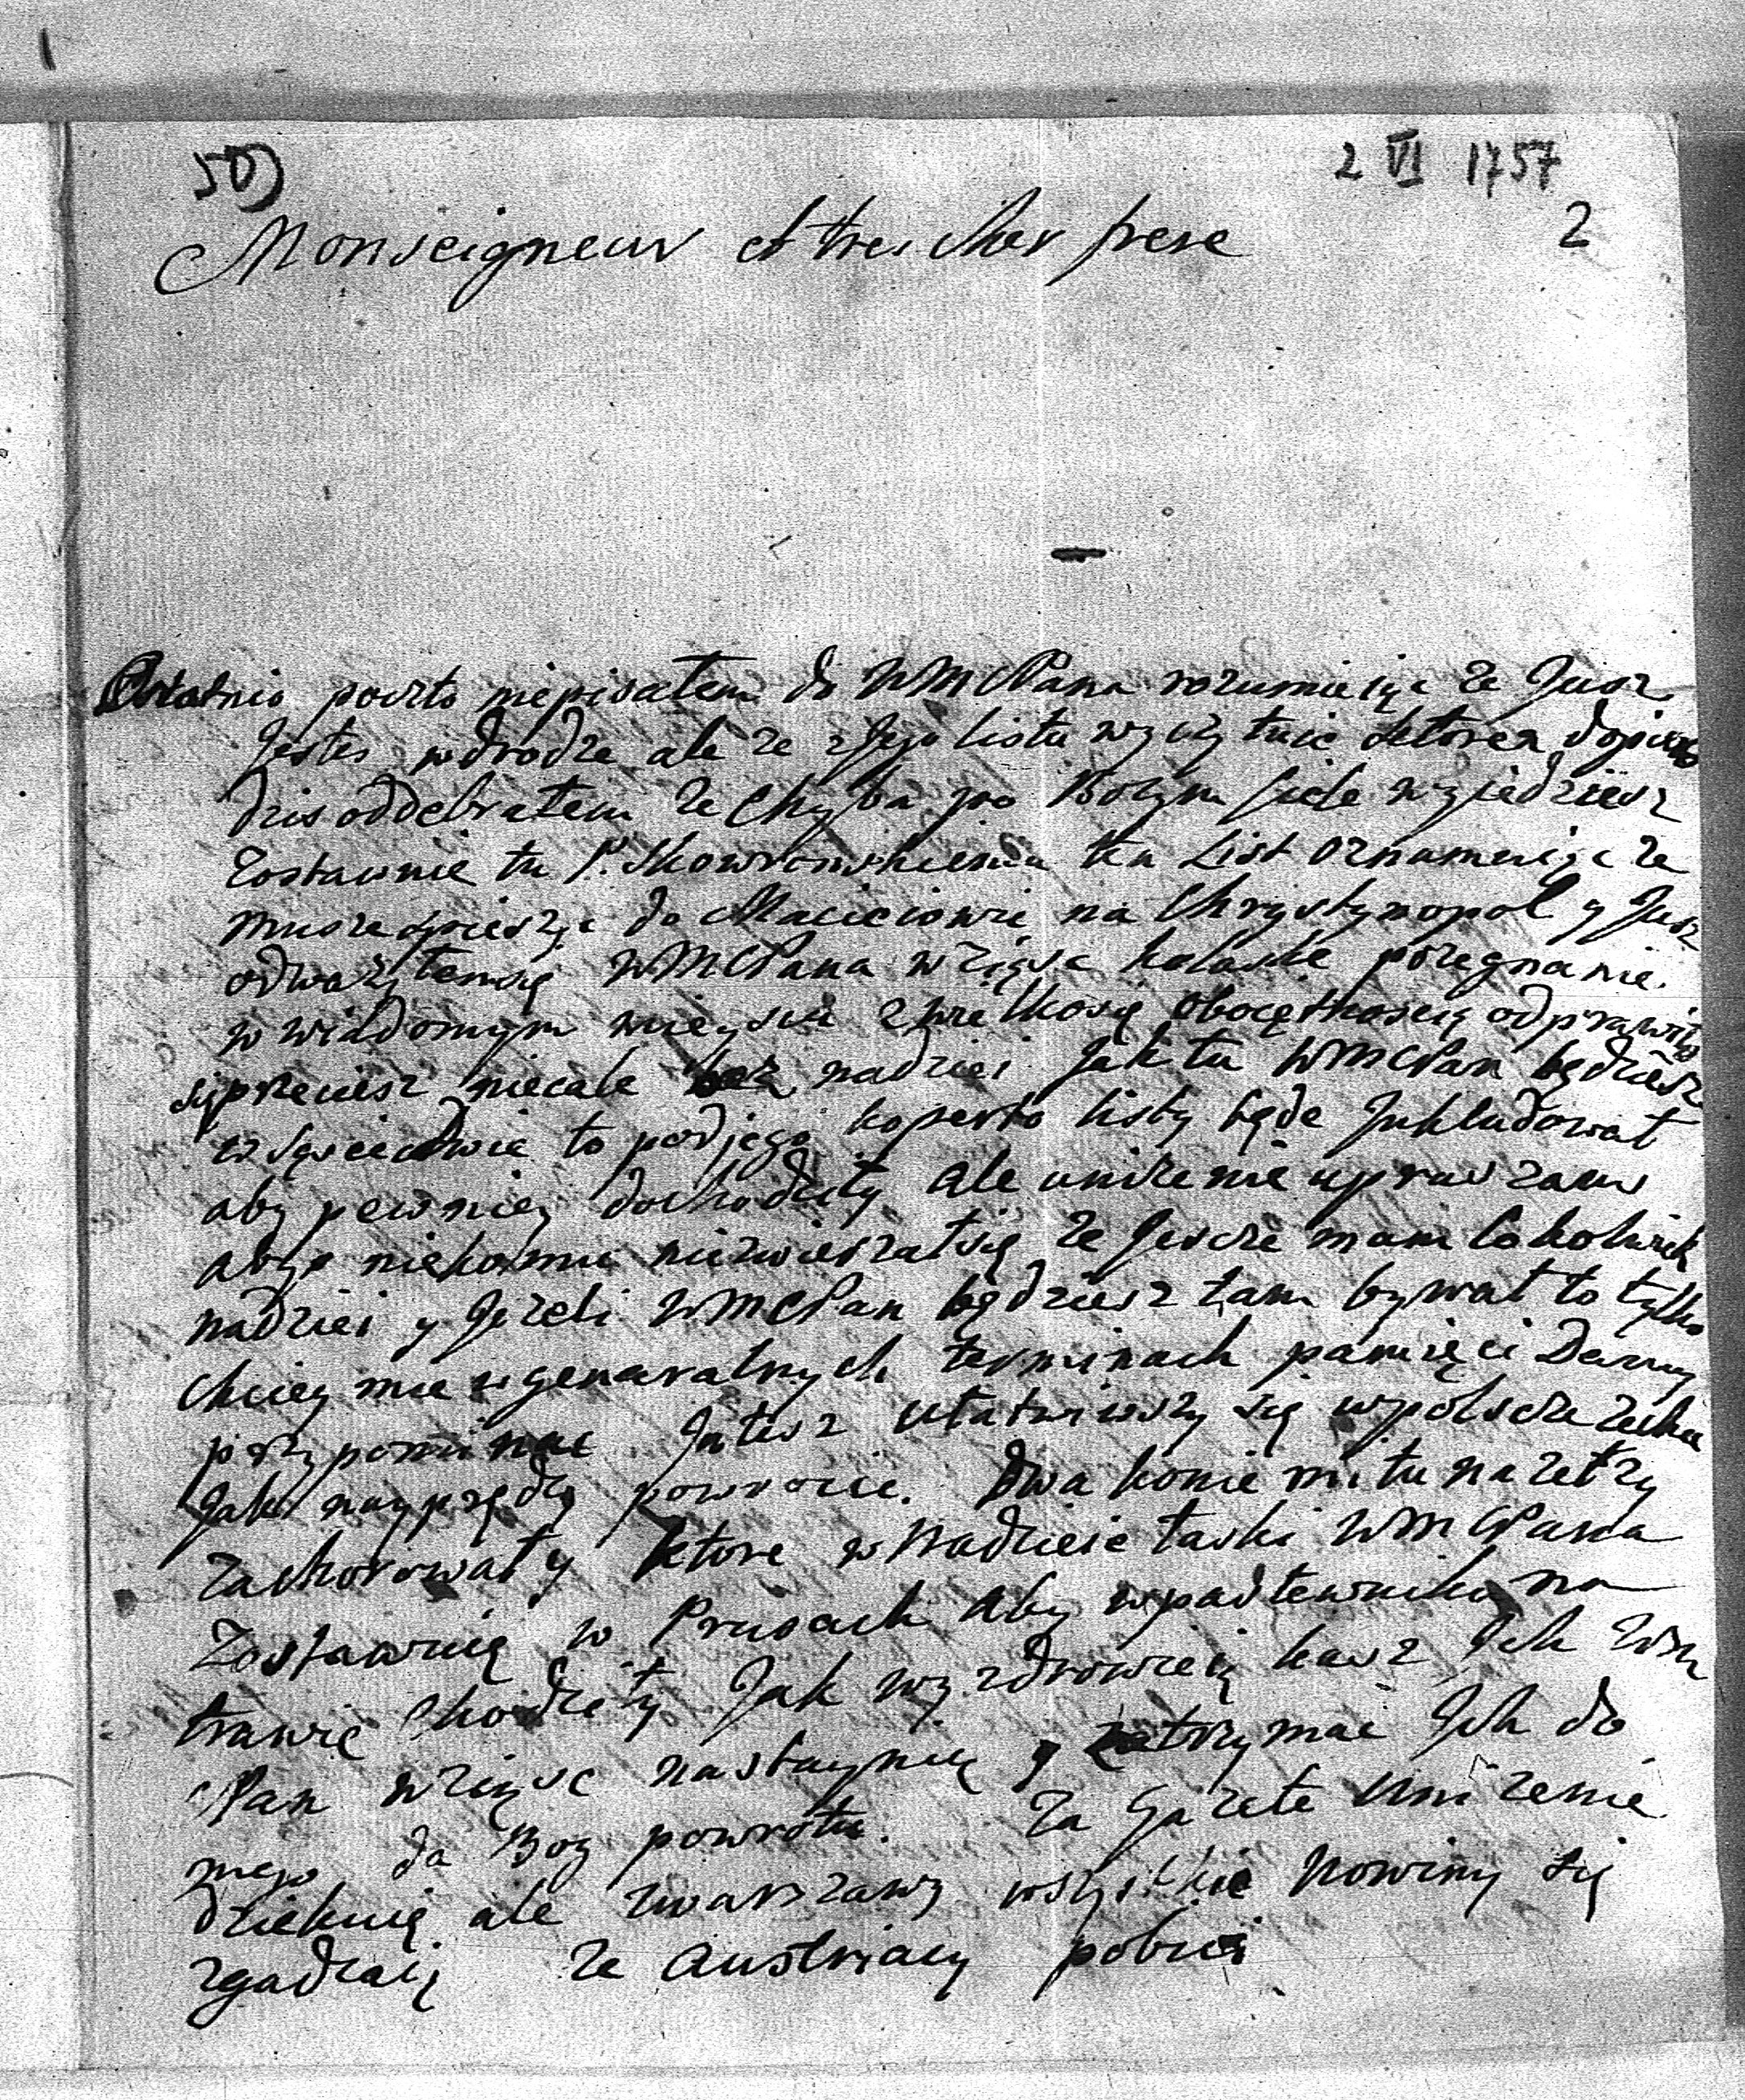 50)
2 VI 1757
2
Monseigneur et tres cher frere
Ostatnio poczto niepisałem do WMCPana rozumieiąc ze Jusz
Jestes wdrodze ale ze z Jego listu wyczytuie ktoren dopiero
dzis oddebrałem ze chyba po Bozym Ciele wyiedziesz
Zostawuie tu P. Skowronskiemu ten List oznamuiąc ze
musze spieszyc do Macieiowa na Chrystynopol y Jusz
odwazyłemsię WMCPana wziąsc kolaske pozegnanie
w wiadomym mieyscu z wielkosią oboiętnoscią odprawiło
sięprzeciesz niecale bez nadziei Jak tu WMCPan będziesz
w sąsiedwie to pod jego koperto listy będe Jnkludował
aby pewniey dochodziły ale unizenie upraszam
abys nikomu niezwierzałsię ze Jescze mam cokolwiek
nadziei y Jezeli WMCPan będziesz tam bywał to tylko
chciey mie w generalnych terminach pamięci Damy
przypominac Jatesz ułatwiwszy się wpolscze zechce
Jak nayprędzy powrocic. Dwa konie mi tu na zełzy
zachorowały ktore w Nadzieie łaski WMCPana
Zostawuię w Prusach aby wpastewniku na
trawie chodzeły Jak wyzdrowieią kasz Ich WM
CPan wziąsc nastaynią y zatrzymac Ich do
mego da Bog powrotu. Za Gazete unizenie
dziekuię ale zwarszawy wszystkie nowiny się
zgadzaią ze Austriacy pobici